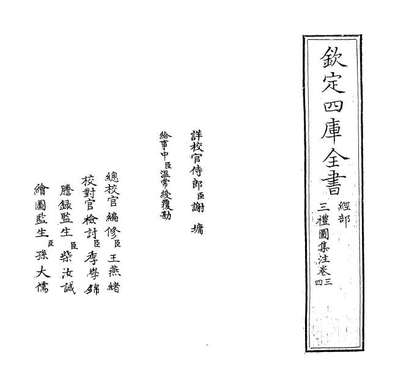 欽定四庫全書
經部
三禮圖集注卷三四
詳校官侍郎臣謝墉
給事中臣溫常綬覆勘
總校官編修臣王燕緒
校對官檢討臣季學錦
謄錄監生臣柴汝誠
繪圖監生臣孫大儒